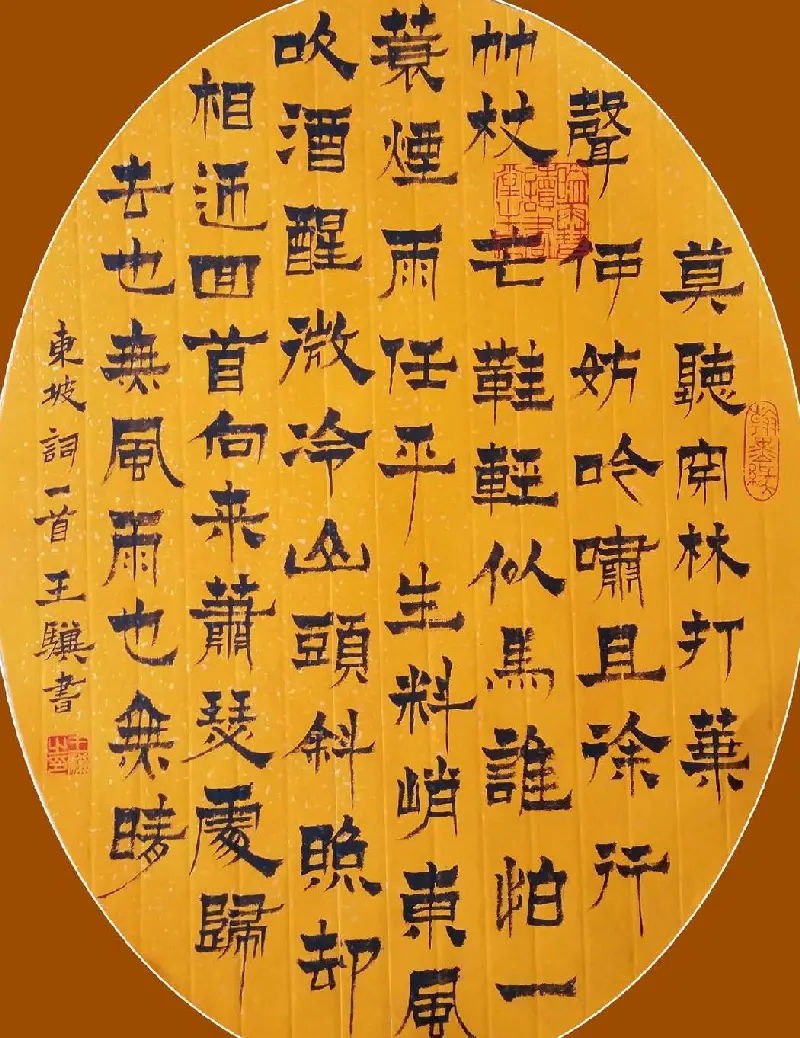 莫聽穿林打葉
聲何妨吟嘯且徐行
竹杖芒鞋輕似馬誰怕一
蓑煙雨任平生料峭東風
吹酒醒微冷山頭斜照却
相迎回首向来蕭瑟處歸
去也無風雨也無晴
東坡詞一首王驥書